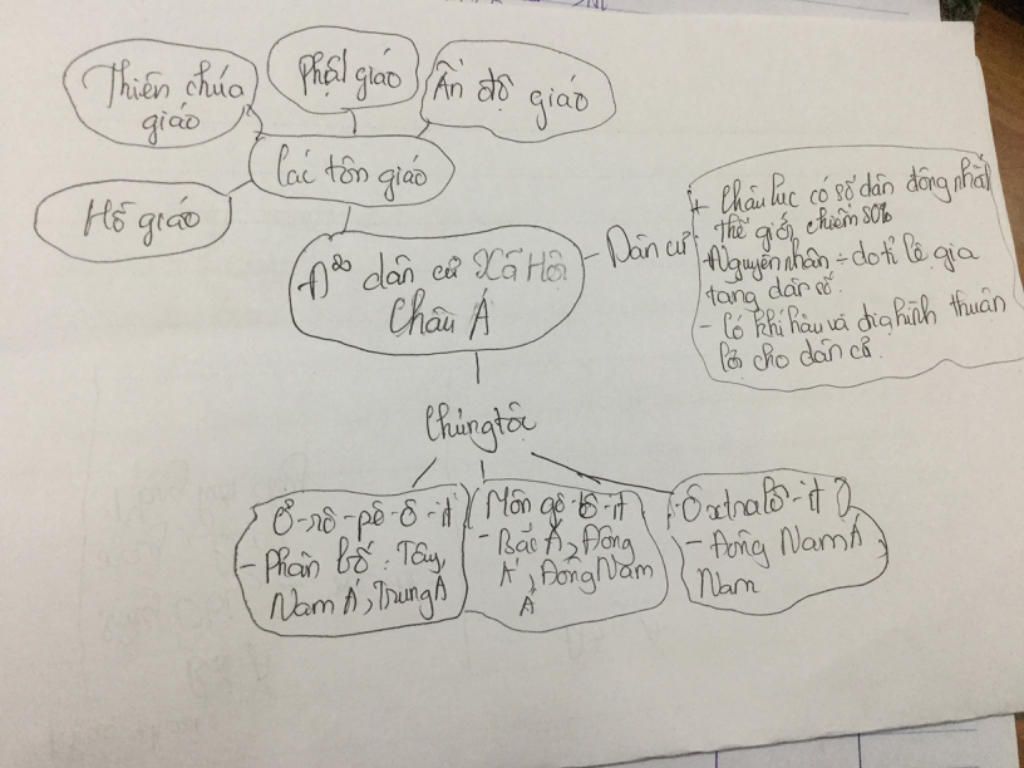 Thiên chúa
giáo
Phật giáo
Ấn độ
giáo
Các tôn giáo
Hồ giáo
dân cư Xã Hội
Châu Á
Dân cư
+ Châu lục có số dân đông nhất
thế giới, chiếm
Nguyên nhân ÷ do tỉ lệ gia
tang dân số.
- Có khí hậu và địa hình thuân
lợi cho dân cư.
Chủng tộc
Ơ-rô-pê-ô-ít
- Phân bố: Tây,
Nam Á, Trung Á
Môn gô-lô-ít
- Bắc Á, Đông
Á, Đông Nam
Á
Ôxtralô-ít
- Đông Nam Á,
Nam